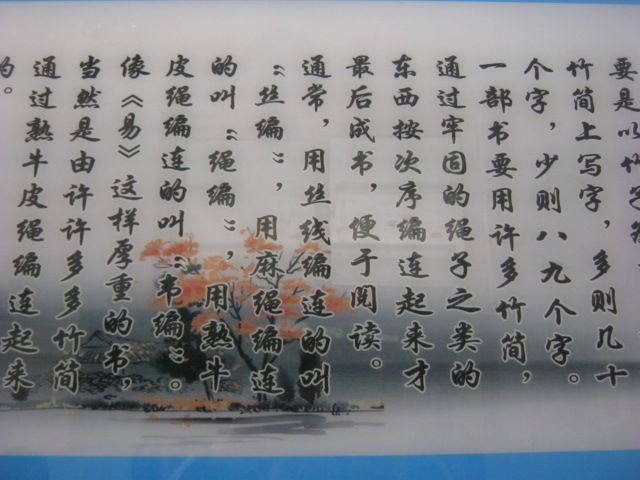 要是以竹子
竹简上写字，多则几十
个字，少则八九个字。
一部书要用许多竹简，
通过牢固的绳子之类的
东西按次序编连起来才
最后成书，便于阅读。
通常，用丝线编连的叫
“丝编”，用麻绳编连
的叫“绳编”，用熟牛
皮绳编连的叫“韦编”。
像《易》这样厚重的书，
当然是由许许多多竹简
通过熟牛皮绳编连起来
的。